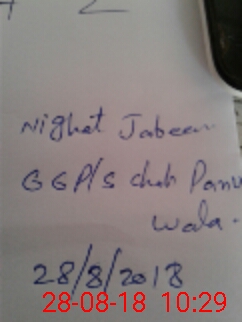 Nighat Jabeen
GGP/S chah Panu
wala.
28/8/2018
28-08-18 10:29